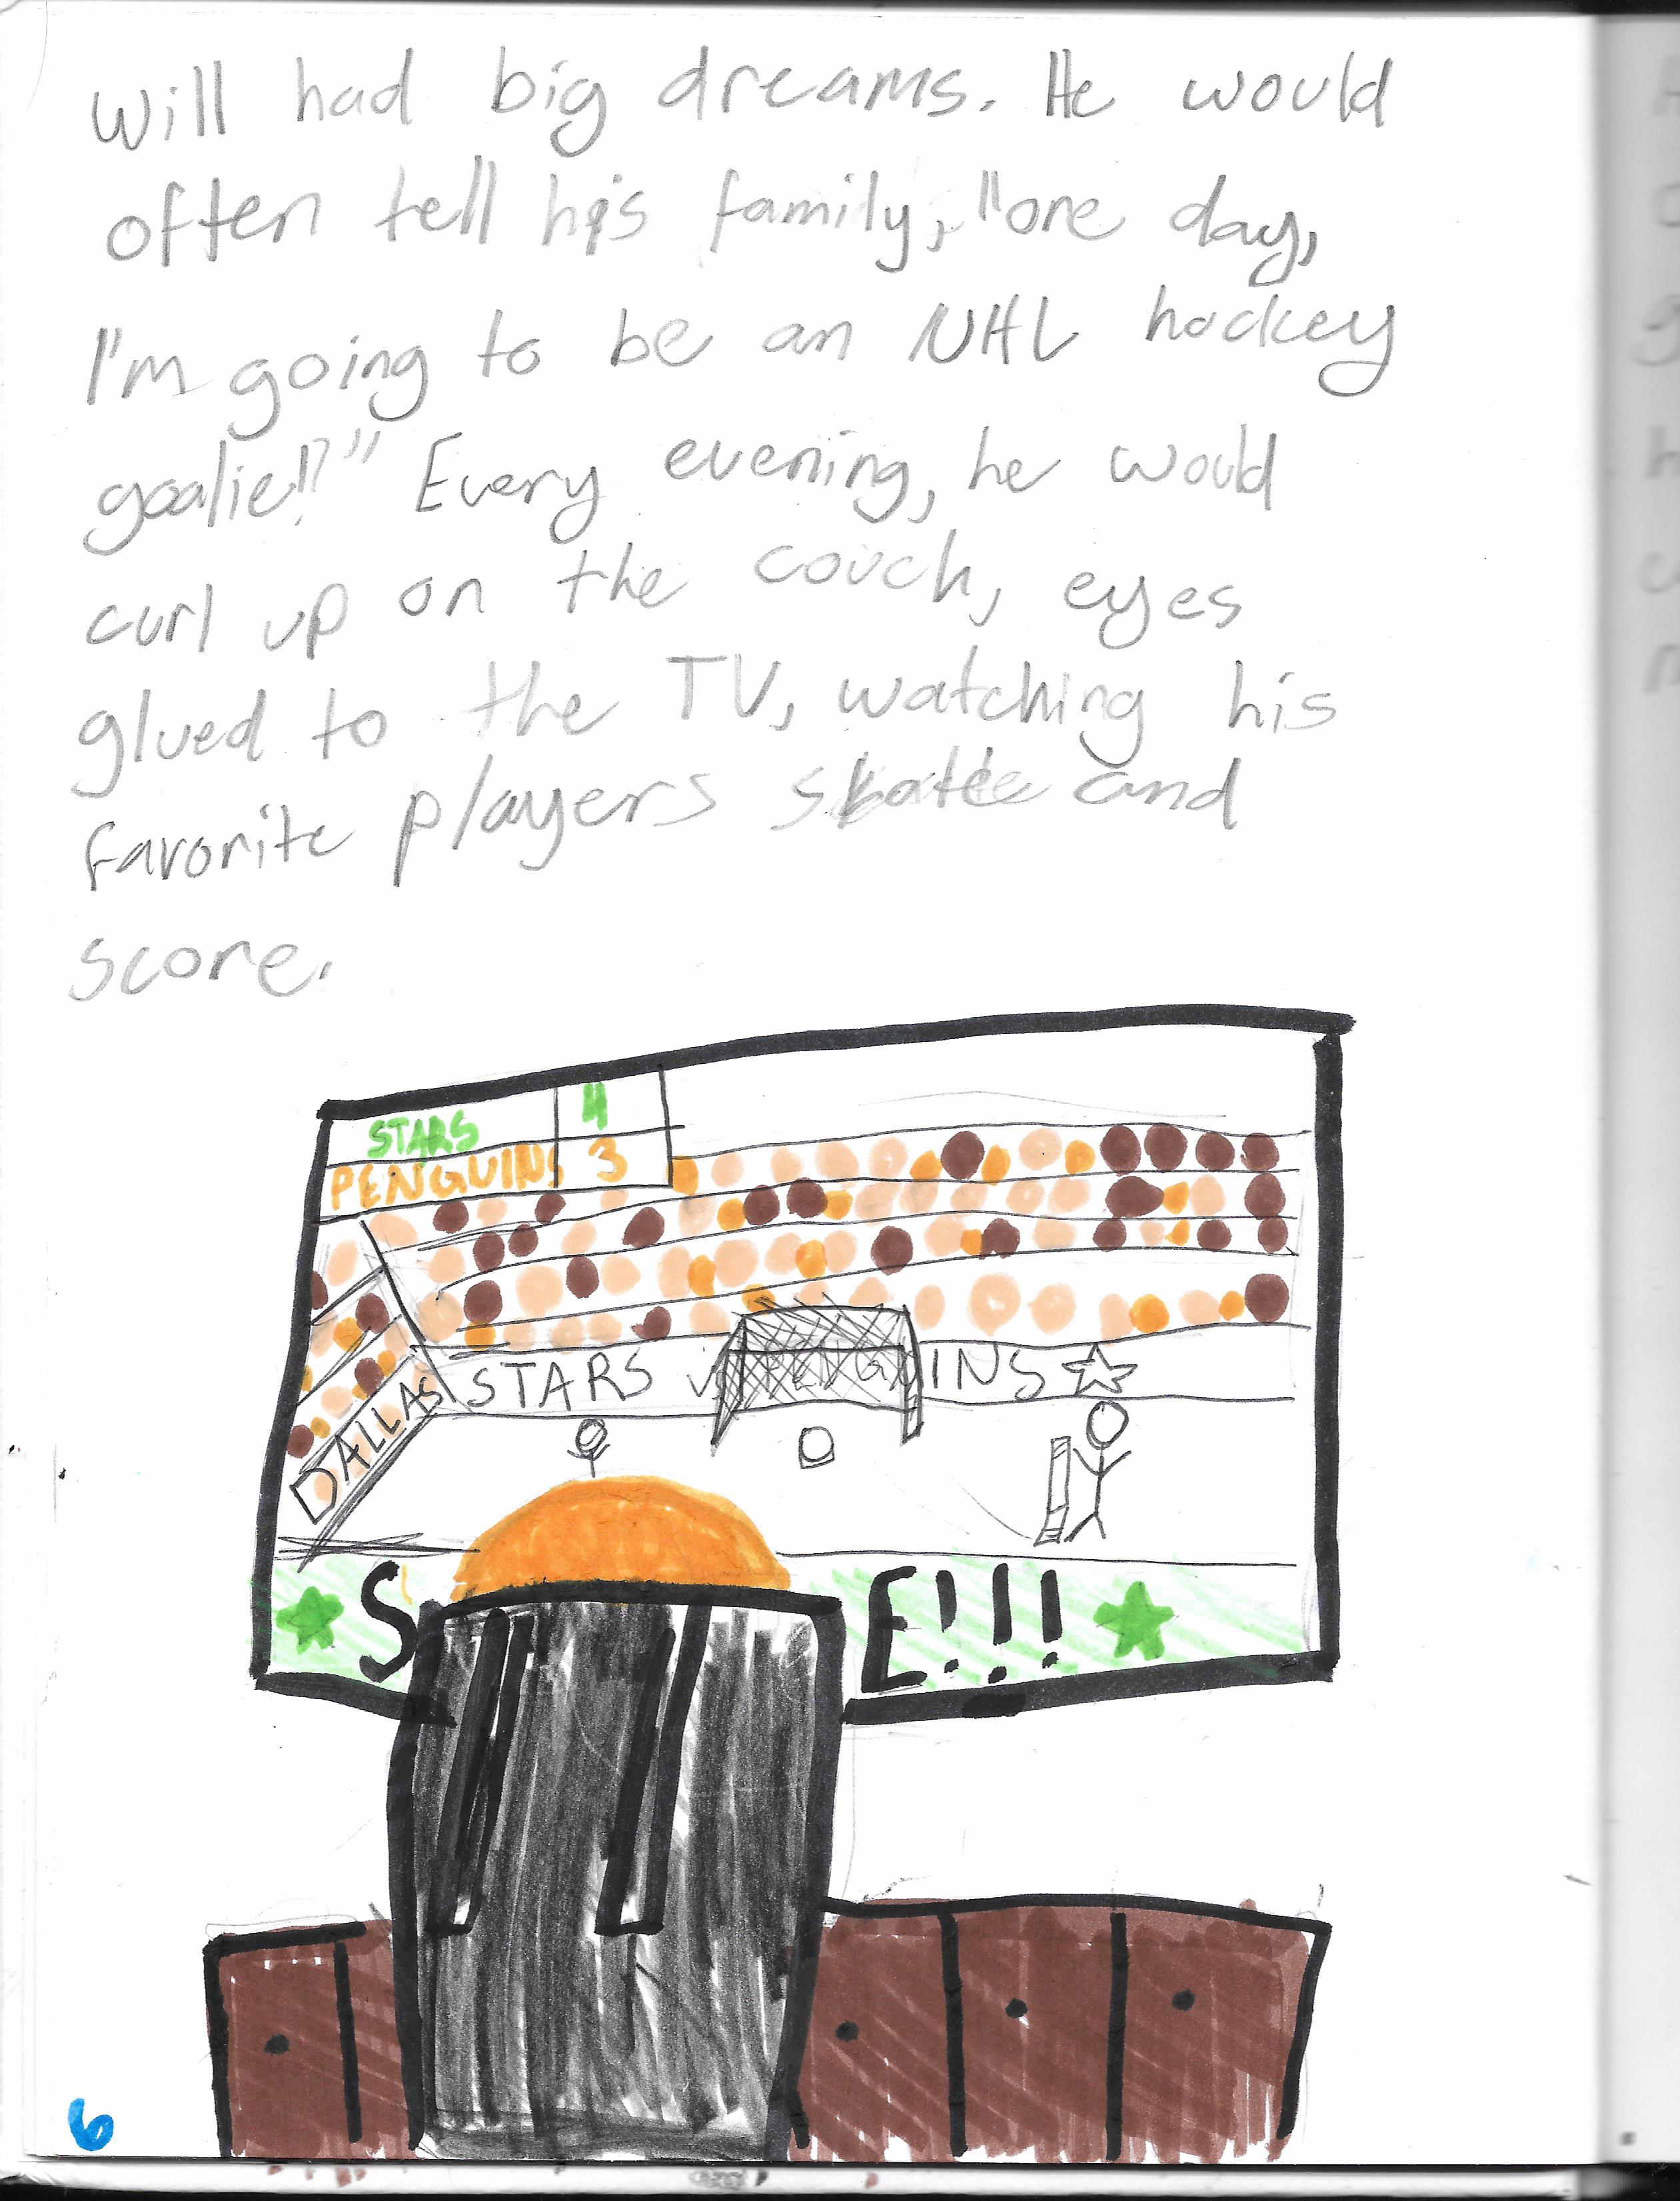 Will had big dreams. He would
often tell his family, "one day,
I'm going to be an NHL hockey
goalie!" Every evening, he would
curl up on the couch, eyes
glued to the TV, watching his
favorite players skate and
score.
STARS 4
PENGUINS 3
STARS VS PENGUINS
DALLAS
S E!!!
6